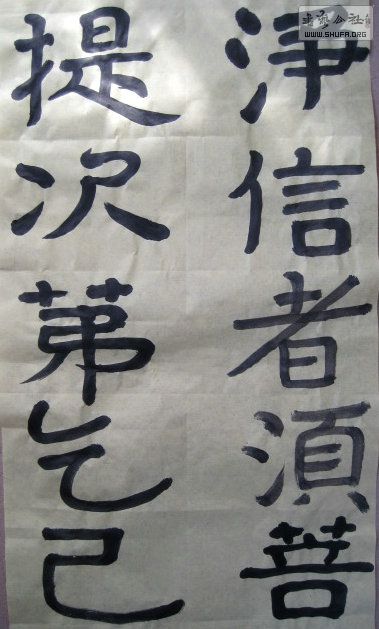 淨信者湏菩
提次苐乞己
公社
WWW.SHUFA.ORG